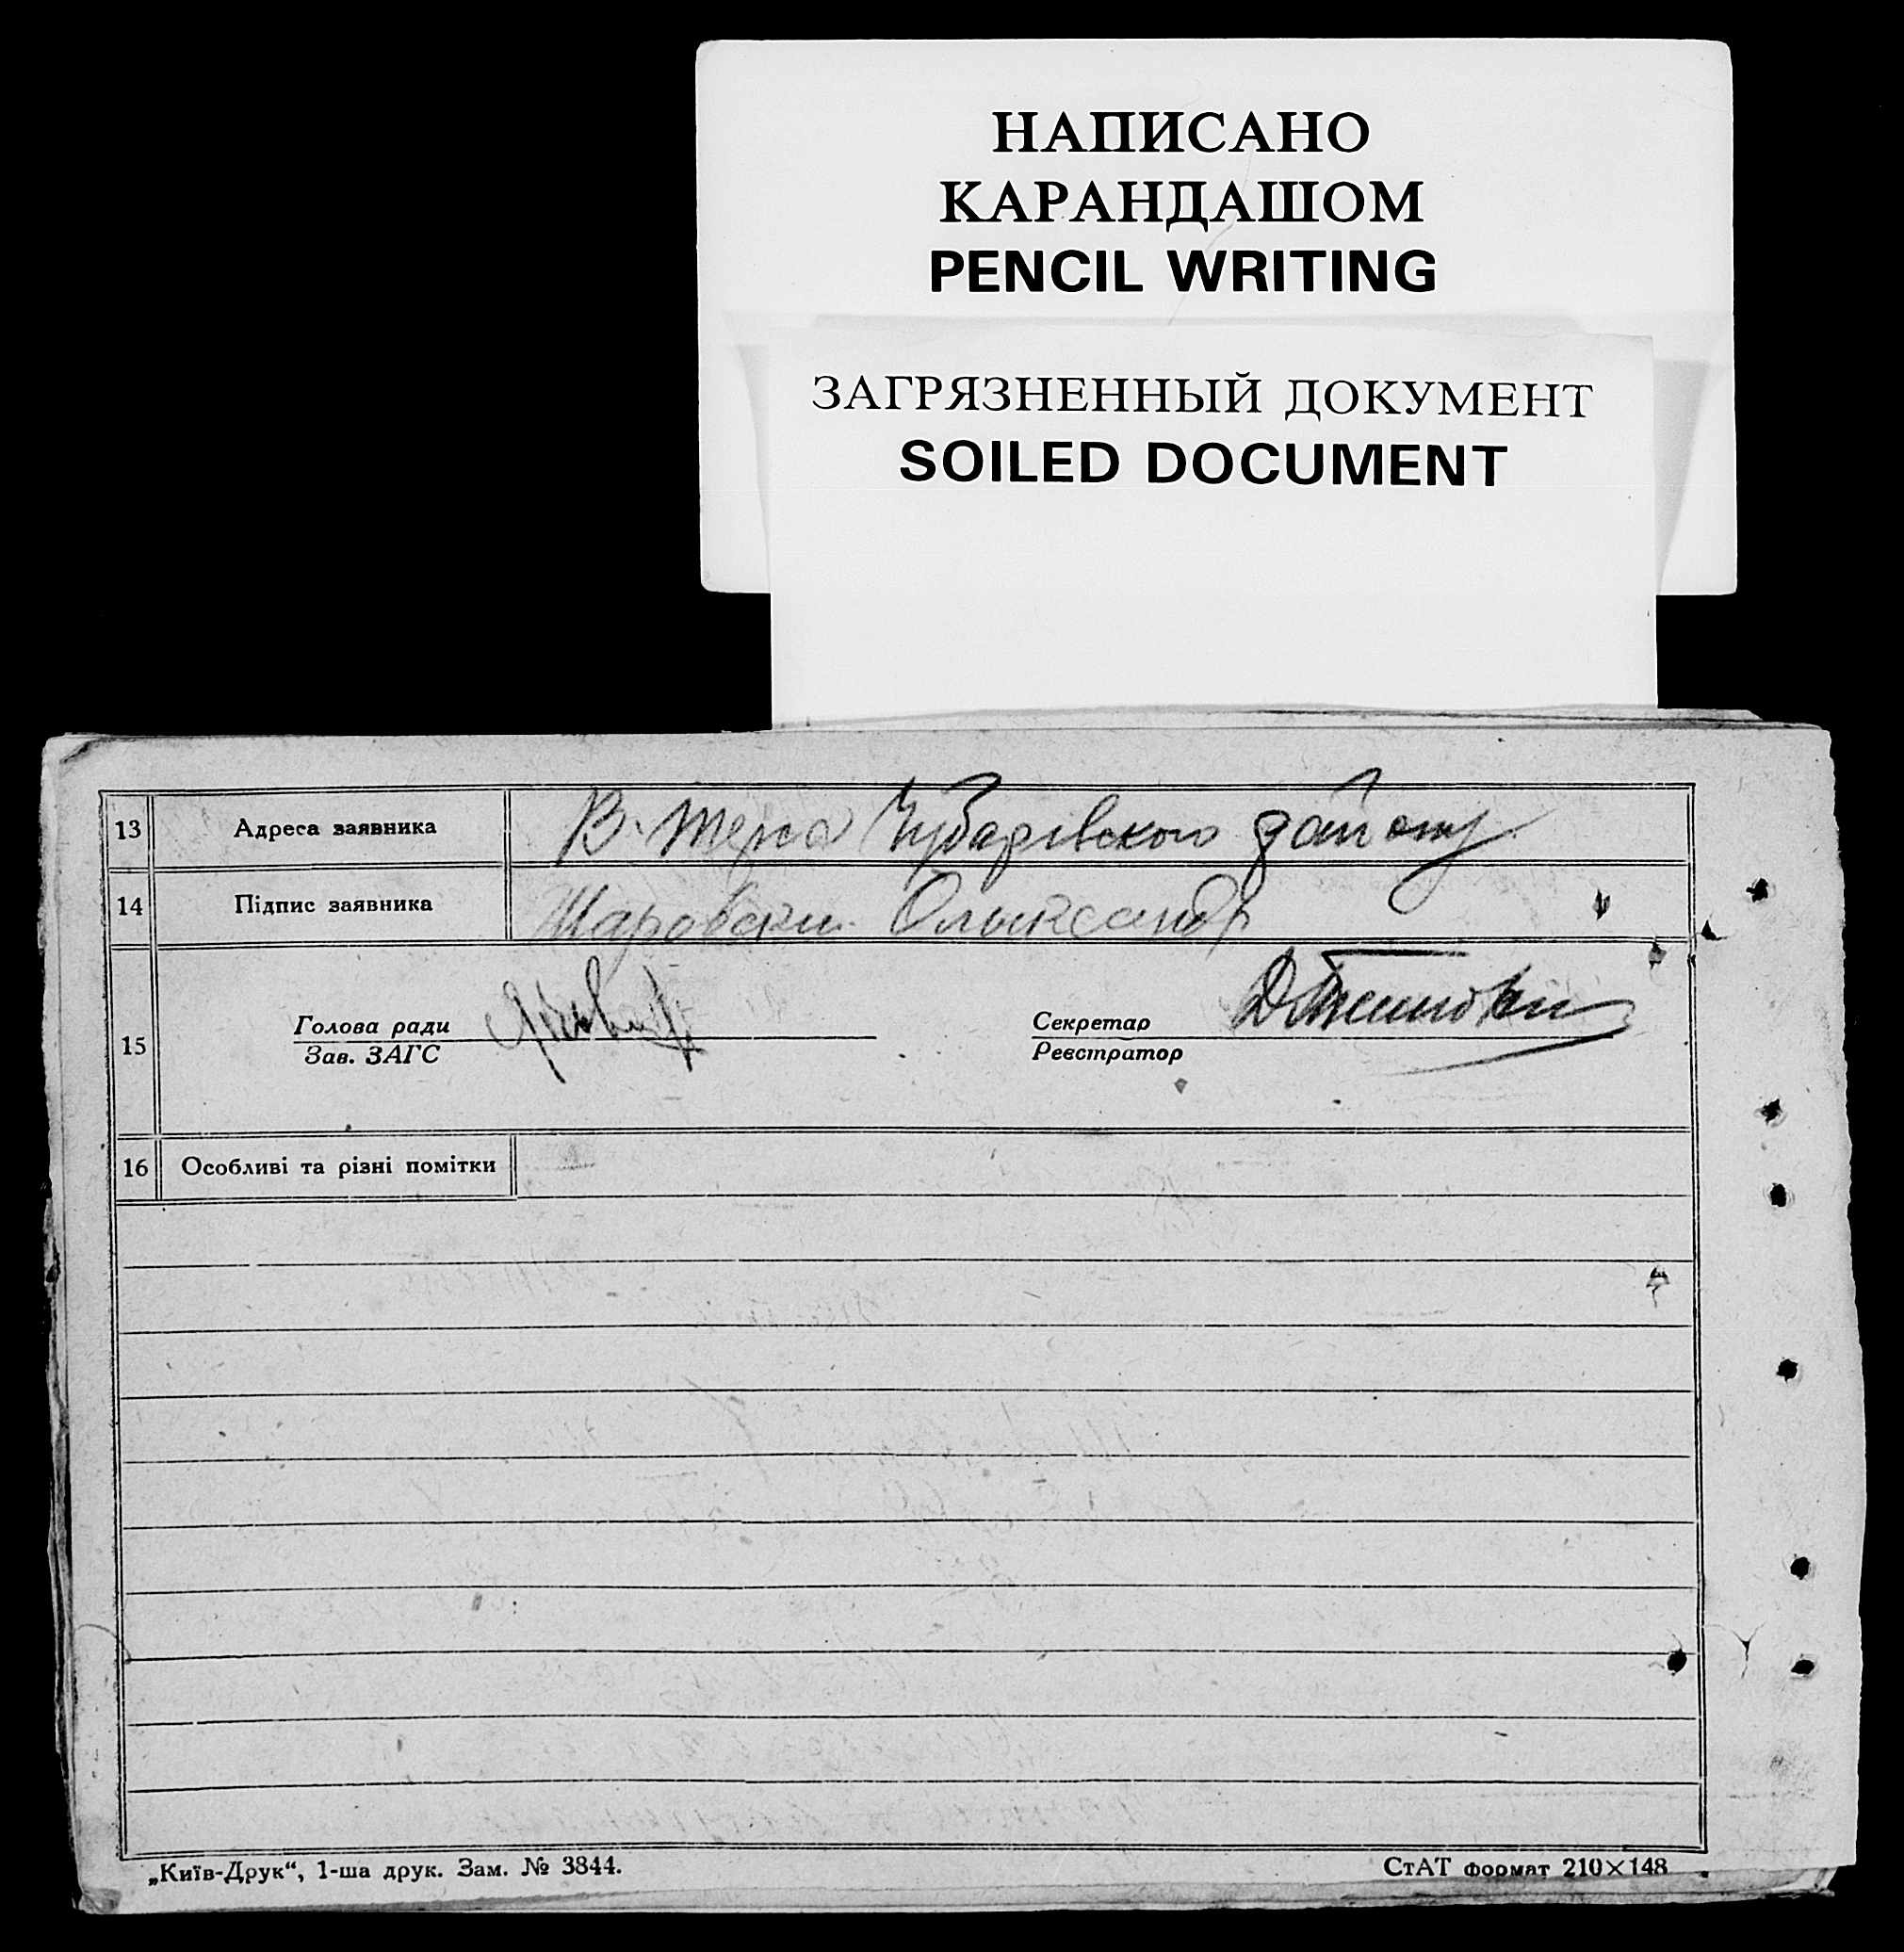 НАПИСАНО
КАРАНДАШОМ
PENCIL WRITING
ЗАГРЯЗНЕННЫЙ ДОКУМЕНТ
SOILED DOCUMENT
13 Адреса заявника В. Терса Чубарівського району
14 Підпис заявника
15 Голова ради Секретар
Зав. ЗАГС Реєстратор
16 Особливі та різні помітки
„Київ-Друк“, 1-ша друк. Зам. № 3844. СтАТ формат 210×148